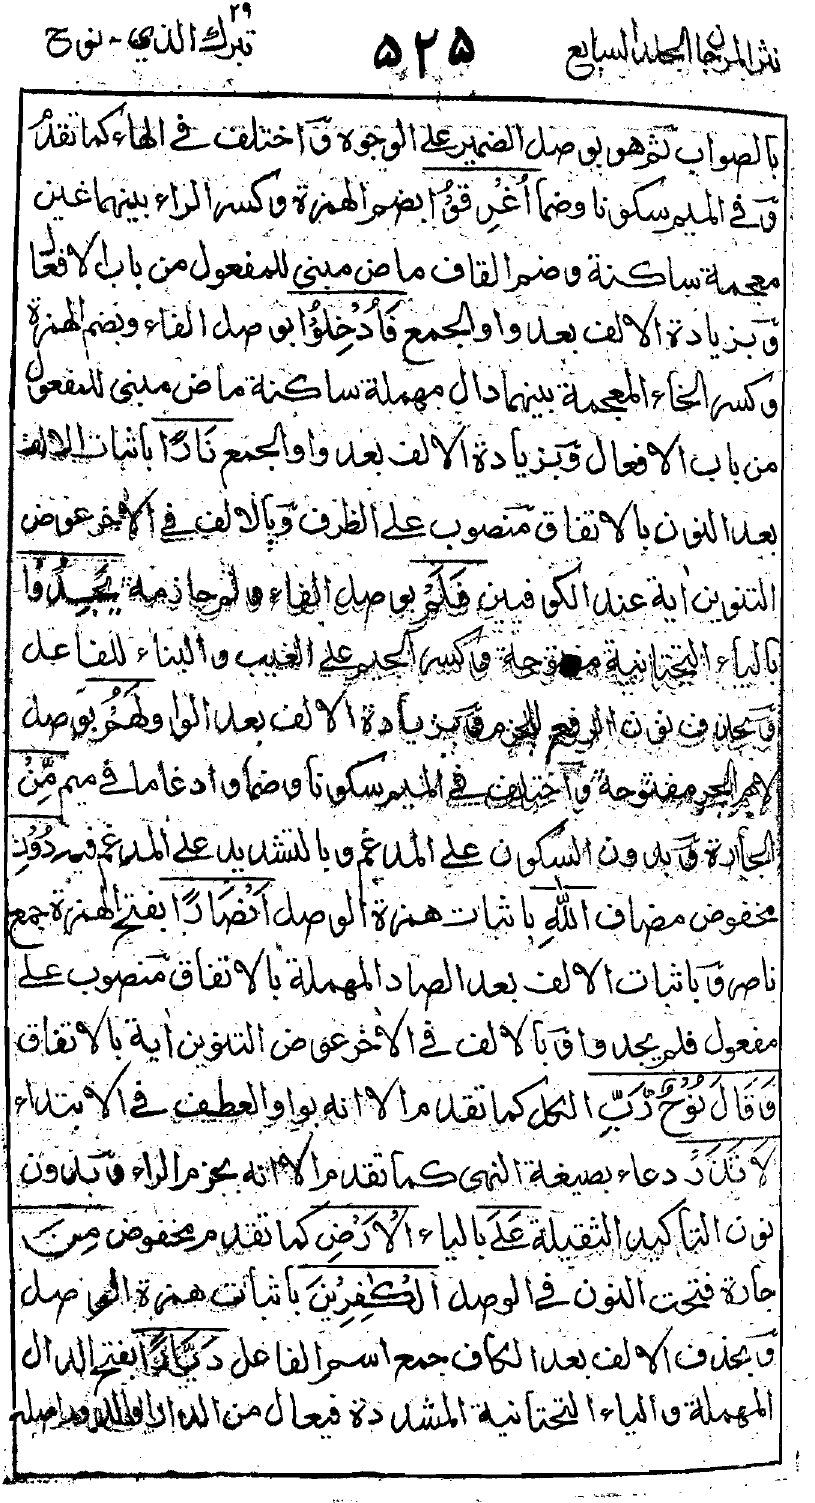 نثر المرجان المجلد السابع
٥٢٥
تبرك الذي ٢٩ - نوح
بالصواب ثم هو بوصل الضمير على الوجوه وَاختلف في الهاء كما تقدم
وَفي الميم سكونا وضما أُغْرِقُوْا بضم الهمزة وكسر الراء بينهما غين
معجمة ساكنة وضم القاف ماض مبني للمفعول من باب الافعال
وَبزيادة الالف بعد واو الجمع فَاُدْخِلُوْا بوصل الفاء وبضم الهمزة
وكسر الخاء المعجمة بينهما دال مهملة ساكنة ماض مبني للمفعول
من باب الافعال وَبزيادة الالف بعد واو الجمع نَارًا باثبات الالف
بعد النون بالاتفاق منصوب على الظرف وَبالالف في الاٰخر عوض
التنوين اٰية عند الكوفيين فَلَمْ بوصل الفاء ولم جازمة يَجِدُوْا
بالياء التحتانية مفتوحة وكسر الجيم على الغيب والبناء للفاعل
وَبحذف نون الرفع للجزم وَبزيادة الالف بعد الواو لَهُمْ بوصل
لام الجر مفتوحة وَاختلف في الميم سكونا وضما وادغاما في ميم مِّنْ
الجارة وَبدون السكون على المدغم وبالتشديد على المدغم فيه دُوْنِ
مخفوض مضاف اللّٰهِ باثبات همزة الوصل اَنْصَارًا بفتح الهمزة جمع
ناصر وَباثبات الالف بعد الصاد المهملة بالاتفاق منصوب على
مفعول فلم يجدوا وَبالالف في الاٰخر عوض التنوين اٰية بالاتفاق
وَقَالَ نُوْحٌ رَّبِّ الكل كما تقدم الا انه بواو العطف في الابتداء
لَا تَذَرْ دعاء بصيغة النهى كما تقدم الا انه بجزم الراء وَبدون
نون التأكيد الثقيلة عَلَى بالياء الْاَرْضِ كما تقدم مخفوض مِنَ
جارة فتحت النون في الوصل الْكٰفِرِيْنَ باثبات همزة الوصل
وَبحذف الالف بعد الكاف جمع اسم الفاعل دَيَّارًا بفتح الدال
المهملة والياء التحتانية المشددة فيعال من الدار او الدور اصله